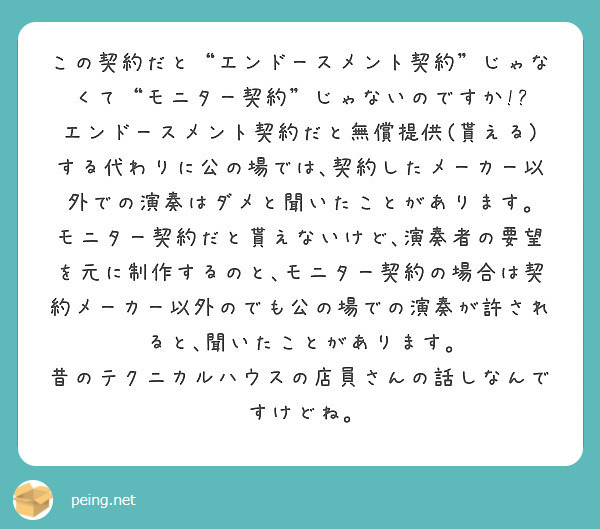 この契約だと“エンドースメント契約”じゃな
くて“モニター契約”じゃないのですか!?
エンドースメント契約だと無償提供(貰える)
する代わりに公の場では､契約したメーカー以
外での演奏はダメと聞いたことがあります。
モニター契約だと貰えないけど､演奏者の要望
を元に制作するのと､モニター契約の場合は契
約メーカー以外のでも公の場での演奏が許され
ると､聞いたことがあります。
昔のテクニカルハウスの店員さんの話しなんで
すけどね。
peing.net